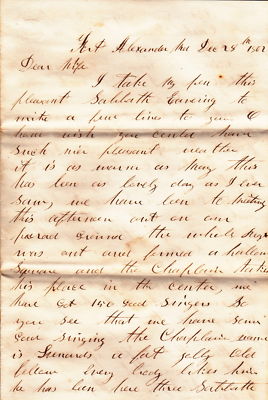 Fort Alexander Md Dec 28th 1862
Dear Wife
I take my pen this
pleasant Sabbath Evening to
write a few lines to you I
have wish you could have
such nice pleasant weather
it is as warm as May this
has been as lovely day as I ever
saw, we have been to meeting
this afternoon out on our
parad ground the whole
was out and formed a hollow
square and the Chaplain
his place in the center, we
have got 150 good singers So
you see that we have some
good singing the Chaplain name
is a fat jolly old
fellow Every body likes him
he has been here three Sabbath